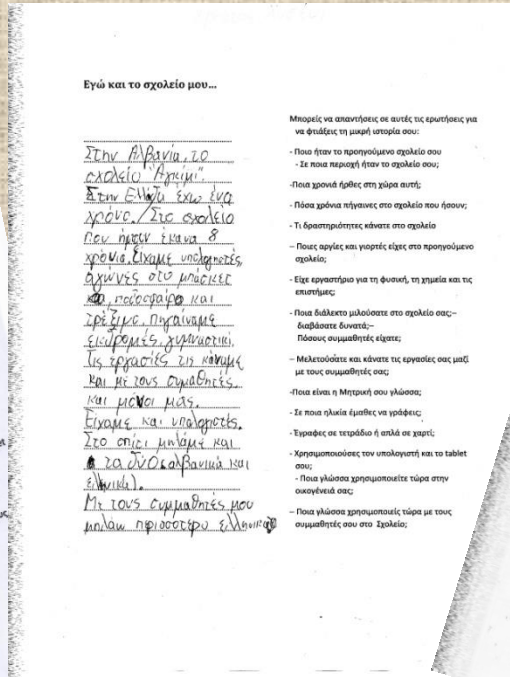 Εγώ και το σχολείο μου...
Στην Αλβανία, το
σχολείο "Αγκίμι".
Στην Ελλάδα έχω ένα
χρόνο. / Στο σχολείο
που ήμουν έκανα 8
χρόνια. Είχαμε υπολογιστές,
αγώνες στο μπάσκετ
ποδοσφαίρο και
τρέξιμο. Πηγαίναμε
εκδρομές, γυμναστική.
Τις εργασίες τις κάναμε
και με τους συμαθητές
και μόνοι μας.
Είχαμε και υπολογιστές.
Στο σπίτι μιλάμε και
τα δύο (αλβανικά και
ελληνικά).
Με τους συμμαθητές μου
μηλαω περισσότερο ελληνικά
Μπορείς να απαντήσεις σε αυτές τις ερωτήσεις για
να φτιάξεις τη μικρή ιστορία σου:
- Ποιο ήταν το προηγούμενο σχολείο σου
- Σε ποια περιοχή ήταν το σχολείο σου;
-Ποια χρονιά ήρθες στη χώρα αυτή;
- Πόσα χρόνια πήγαινες στο σχολείο που ήσουν;
- Τι δραστηριότητες κάνατε στο σχολείο
– Ποιες αργίες και γιορτές είχες στο προηγούμενο
σχολείο;
- Είχε εργαστήριο για τη φυσική, τη χημεία και τις
επιστήμες;
- Ποια διάλεκτο μιλούσατε στο σχολείο σας;–
διαβάσατε δυνατά;–
Πόσους συμμαθητές είχατε;
– Μελετούσατε και κάνατε τις εργασίες σας μαζί
με τους συμμαθητές σας;
-Ποια είναι η Μητρική σου γλώσσα;
- Σε ποια ηλικία έμαθες να γράφεις;
- Έγραφες σε τετράδιο ή απλά σε χαρτί;
- Χρησιμοποιούσες τον υπολογιστή και το tablet
σου;
- Ποια γλώσσα χρησιμοποιείτε τώρα στην
οικογένειά σας;
– Ποια γλώσσα χρησιμοποιείς τώρα με τους
συμμαθητές σου στο Σχολείο;